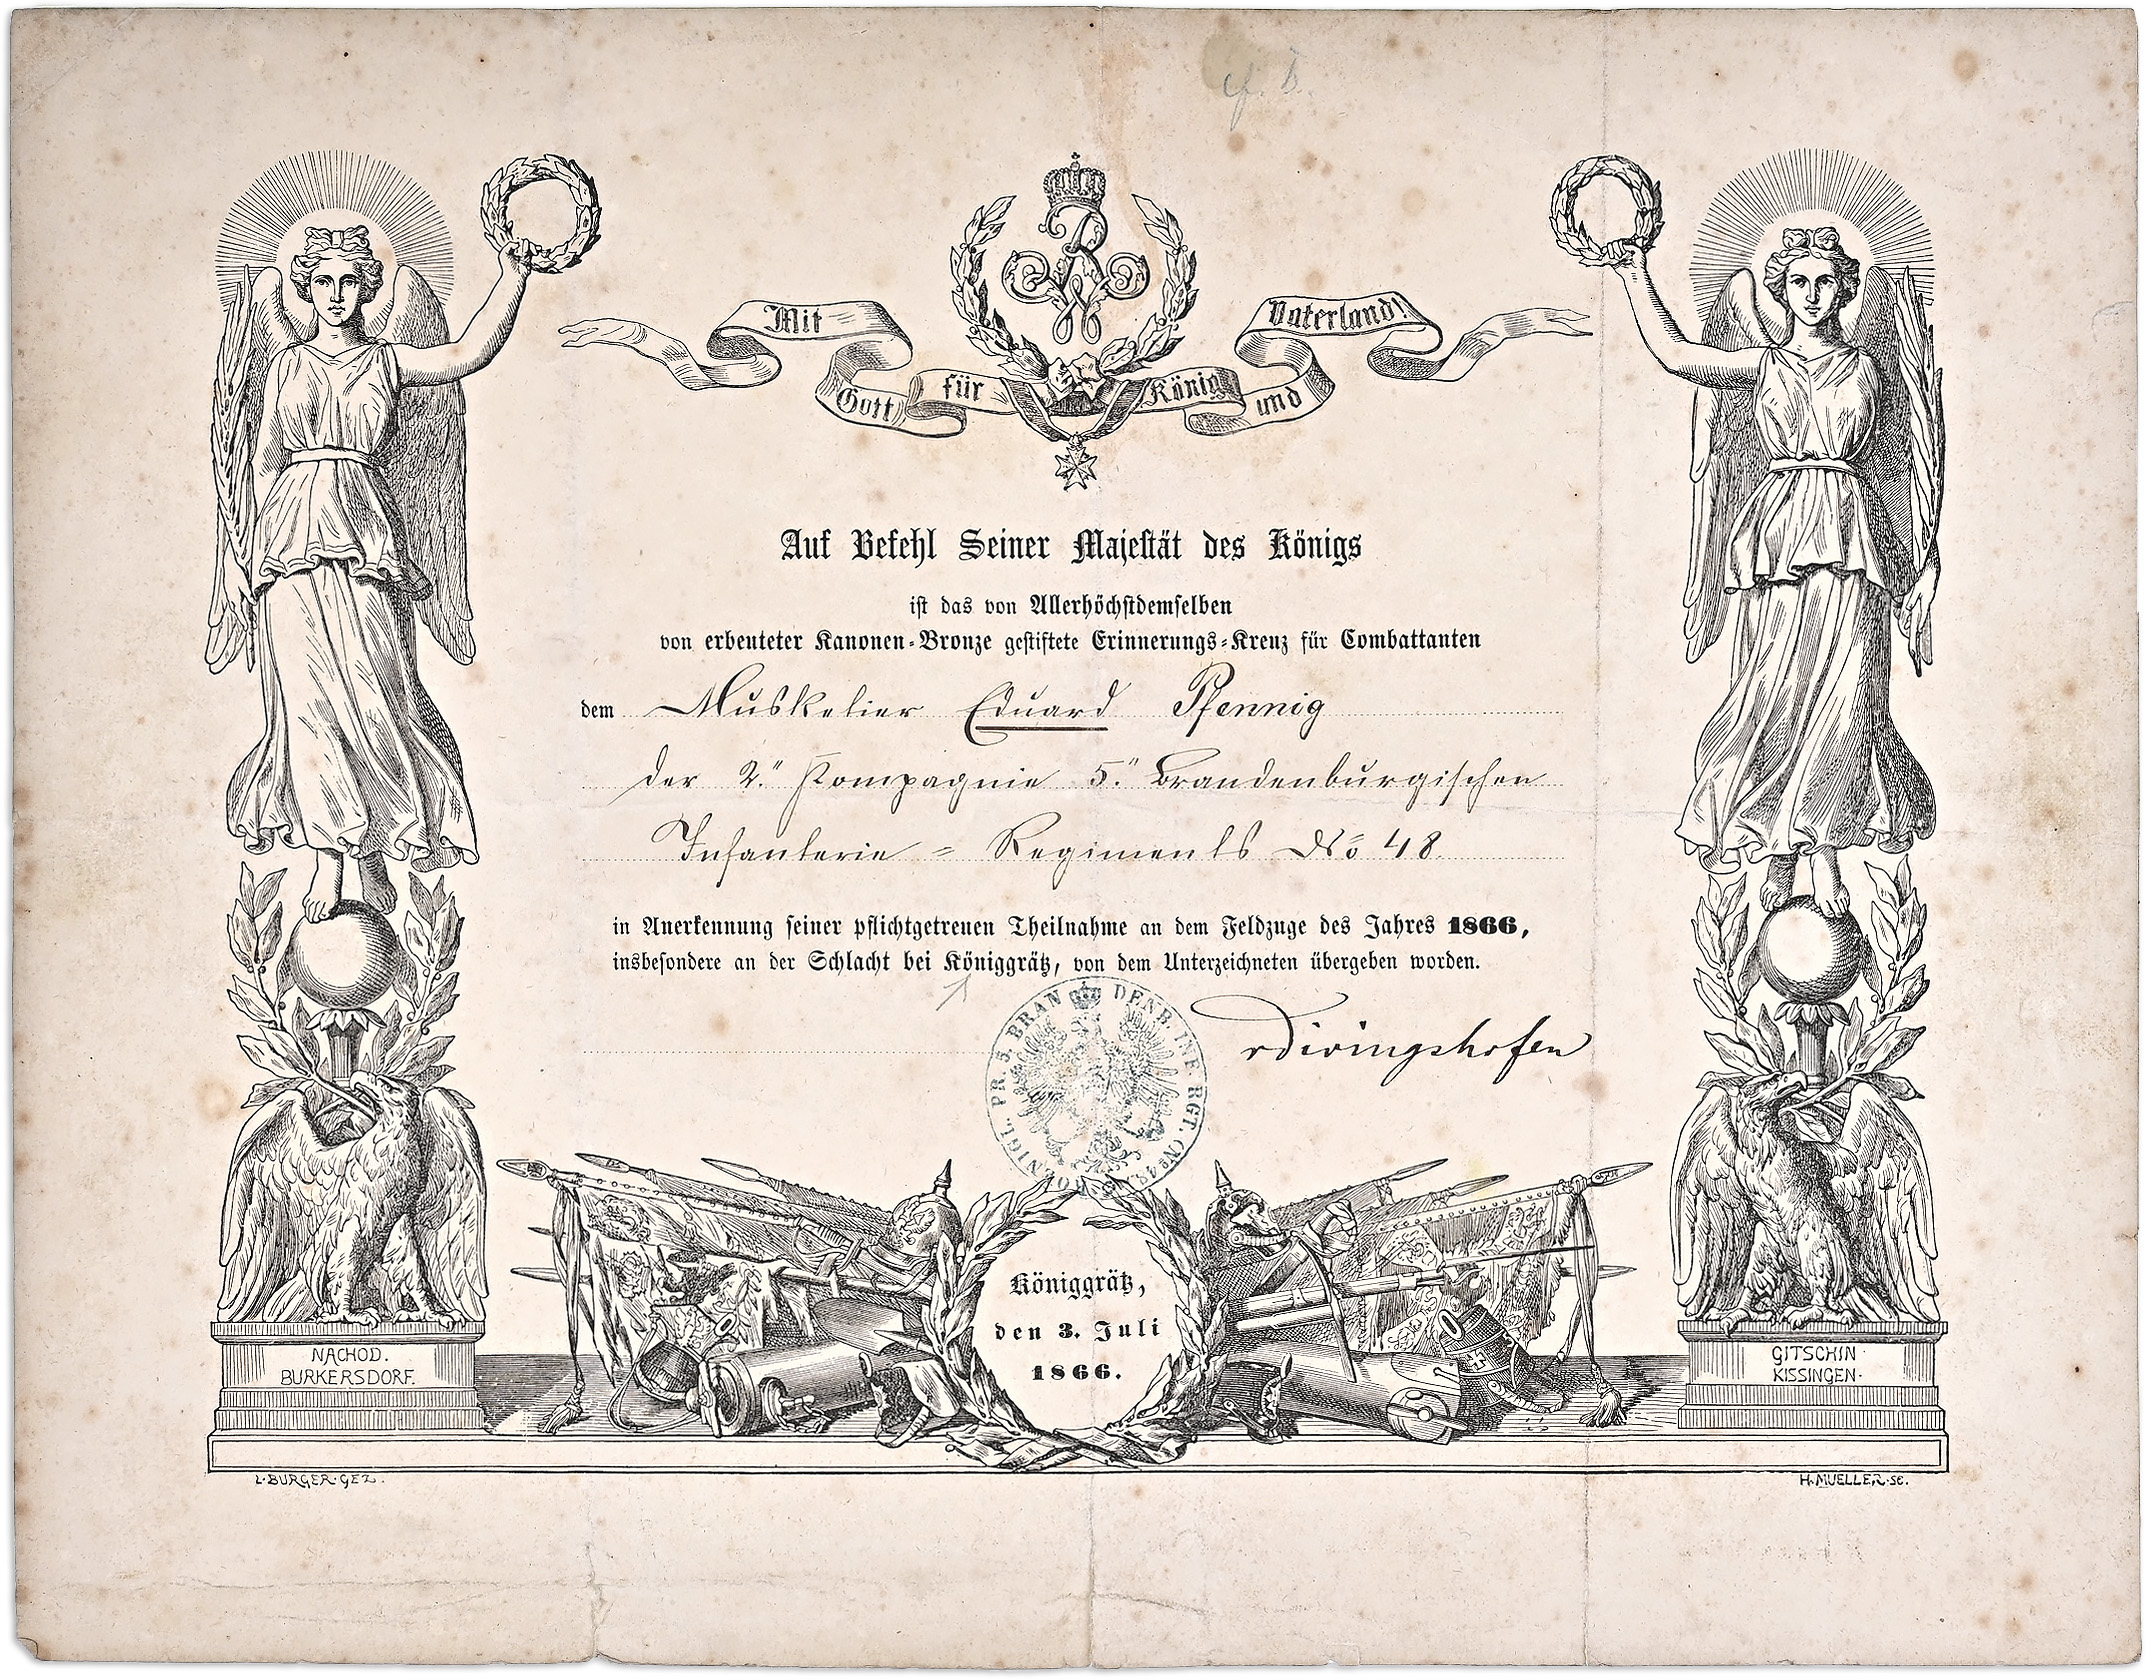 Mit Gott für König und Vaterland!
Auf Befehl Seiner Majestät des Königs
ist das von Allerhöchstdemselben
von erbeuteter Kanonen-Bronze gestiftete Erinnerungs-Kreuz für Combattanten
dem Musketier Eduard Pfennig
der 2t. Kompagnie 5t. Brandenburgischen
Infanterie = Regiments No 48.
in Anerkennung seiner pflichtgetreuen Theilnahme an dem Feldzuge des Jahres 1866,
insbesondere an der Schlacht bei Königgrätz, von dem Unterzeichneten übergeben worden.
KOENIGL. PR. 5. BRANDENB. INF. RGT. (No 48)
v Diringshofen
Königgrätz,
den 3. Juli
1866.
NACHOD.
BURKERSDORF.
GITSCHIN
KISSINGEN.
L. BURGER. GEZ.
H. MUELLER. SC.